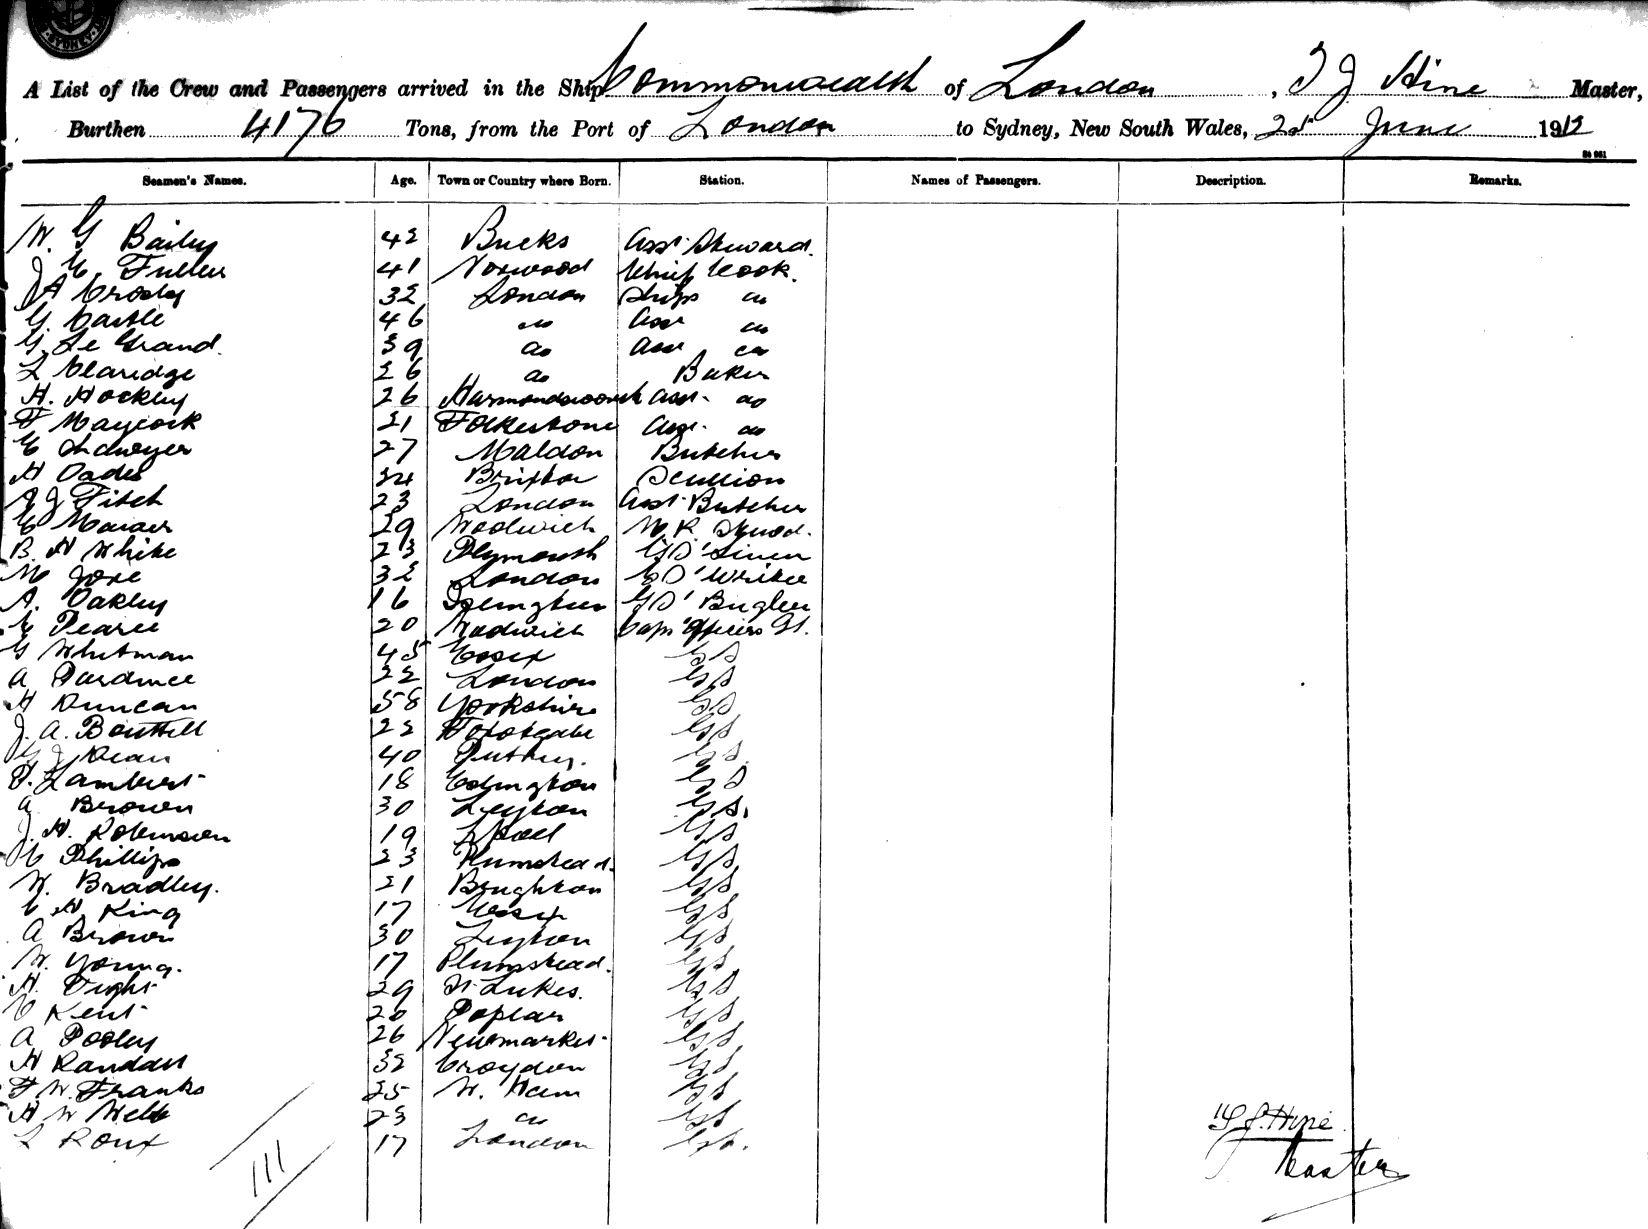 SYDNEY
A List of the Crew and Passengers arrived in the Ship Commonwealth of London, T J Hine Master,
Burthen 4176 Tons, from the Port of London to Sydney, New South Wales, June 1912
Seamen's Names. Age. Town or Country where Born. Station. Names of Passengers. Description. Remarks.
W. G Baily 42 Bucks Asst Steward.
J. C. Fuller 41 Norwood Chief Cook.
J A Crosby 32 London Ships do
G. Castle 46 do Asst do
G. Le Grand. 39 do Asst do
L Claridge 26 do Baker
H. Hockley 26 Harmondsworth Asst. do
F Maycock 21 Folkestone Asst. do
C 27 Maldon Butcher
H Oades 34 Brixton Scullion
A J Fitch 23 London Asst Butcher
C 29 Woolwich W. R. Stewd.
B. H White 23 Plymouth G.S' Linen
M Joxe 32 London G S' Writer
A. Oakley 16 Islington G.S' Bugler
C Pearce 20 Woolwich Capt Officers St.
G Whitman 45 Essex G S
A 22 London G S
H Duncan 58 Yorkshire G S
J. A. Bouttell 22 G S
G J Dean 40 Putney. G S.
P. Lambert 18 Edmonton G S
A Brown 30 Leyton G S.
J. H. Robinson 19 L'pool G S
C Phillips 23 Plumstead. G S
W. Bradley. 21 Brighton G S
C H King 17 Essex G S
A Brown 30 Leyton G S
W. Young. 17 Plumstead. G S
H. 29 St Lukes. G S
C Kent 20 Poplar G S
A Pooley 26 Newmarket G S
H Randall 32 Croydon G S
F W. Franks 25 W. Ham G S
H W Webb 23 do G S
L Roux 17 London G S.
111
T J. Hine
Master